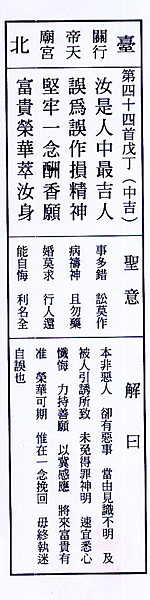 臺北
關帝廟
行天宮
第四十四首戊丁（中吉）
汝是人中最吉人
誤為誤作損精神
堅牢一念酬香願
富貴榮華萃汝身
聖意
事多錯 訟莫作
病禱神 且勿藥
婚莫求 行人還
能自悔 利名全
解曰
本非惡人 卻有惡事 當由見識不明 及
被人引誘所致 未免得罪神明 速宜悉心
懺悔 力持善願 以冀感應 將來富貴有
准 榮華可期 惟在一念挽回 毋終執迷
自誤也